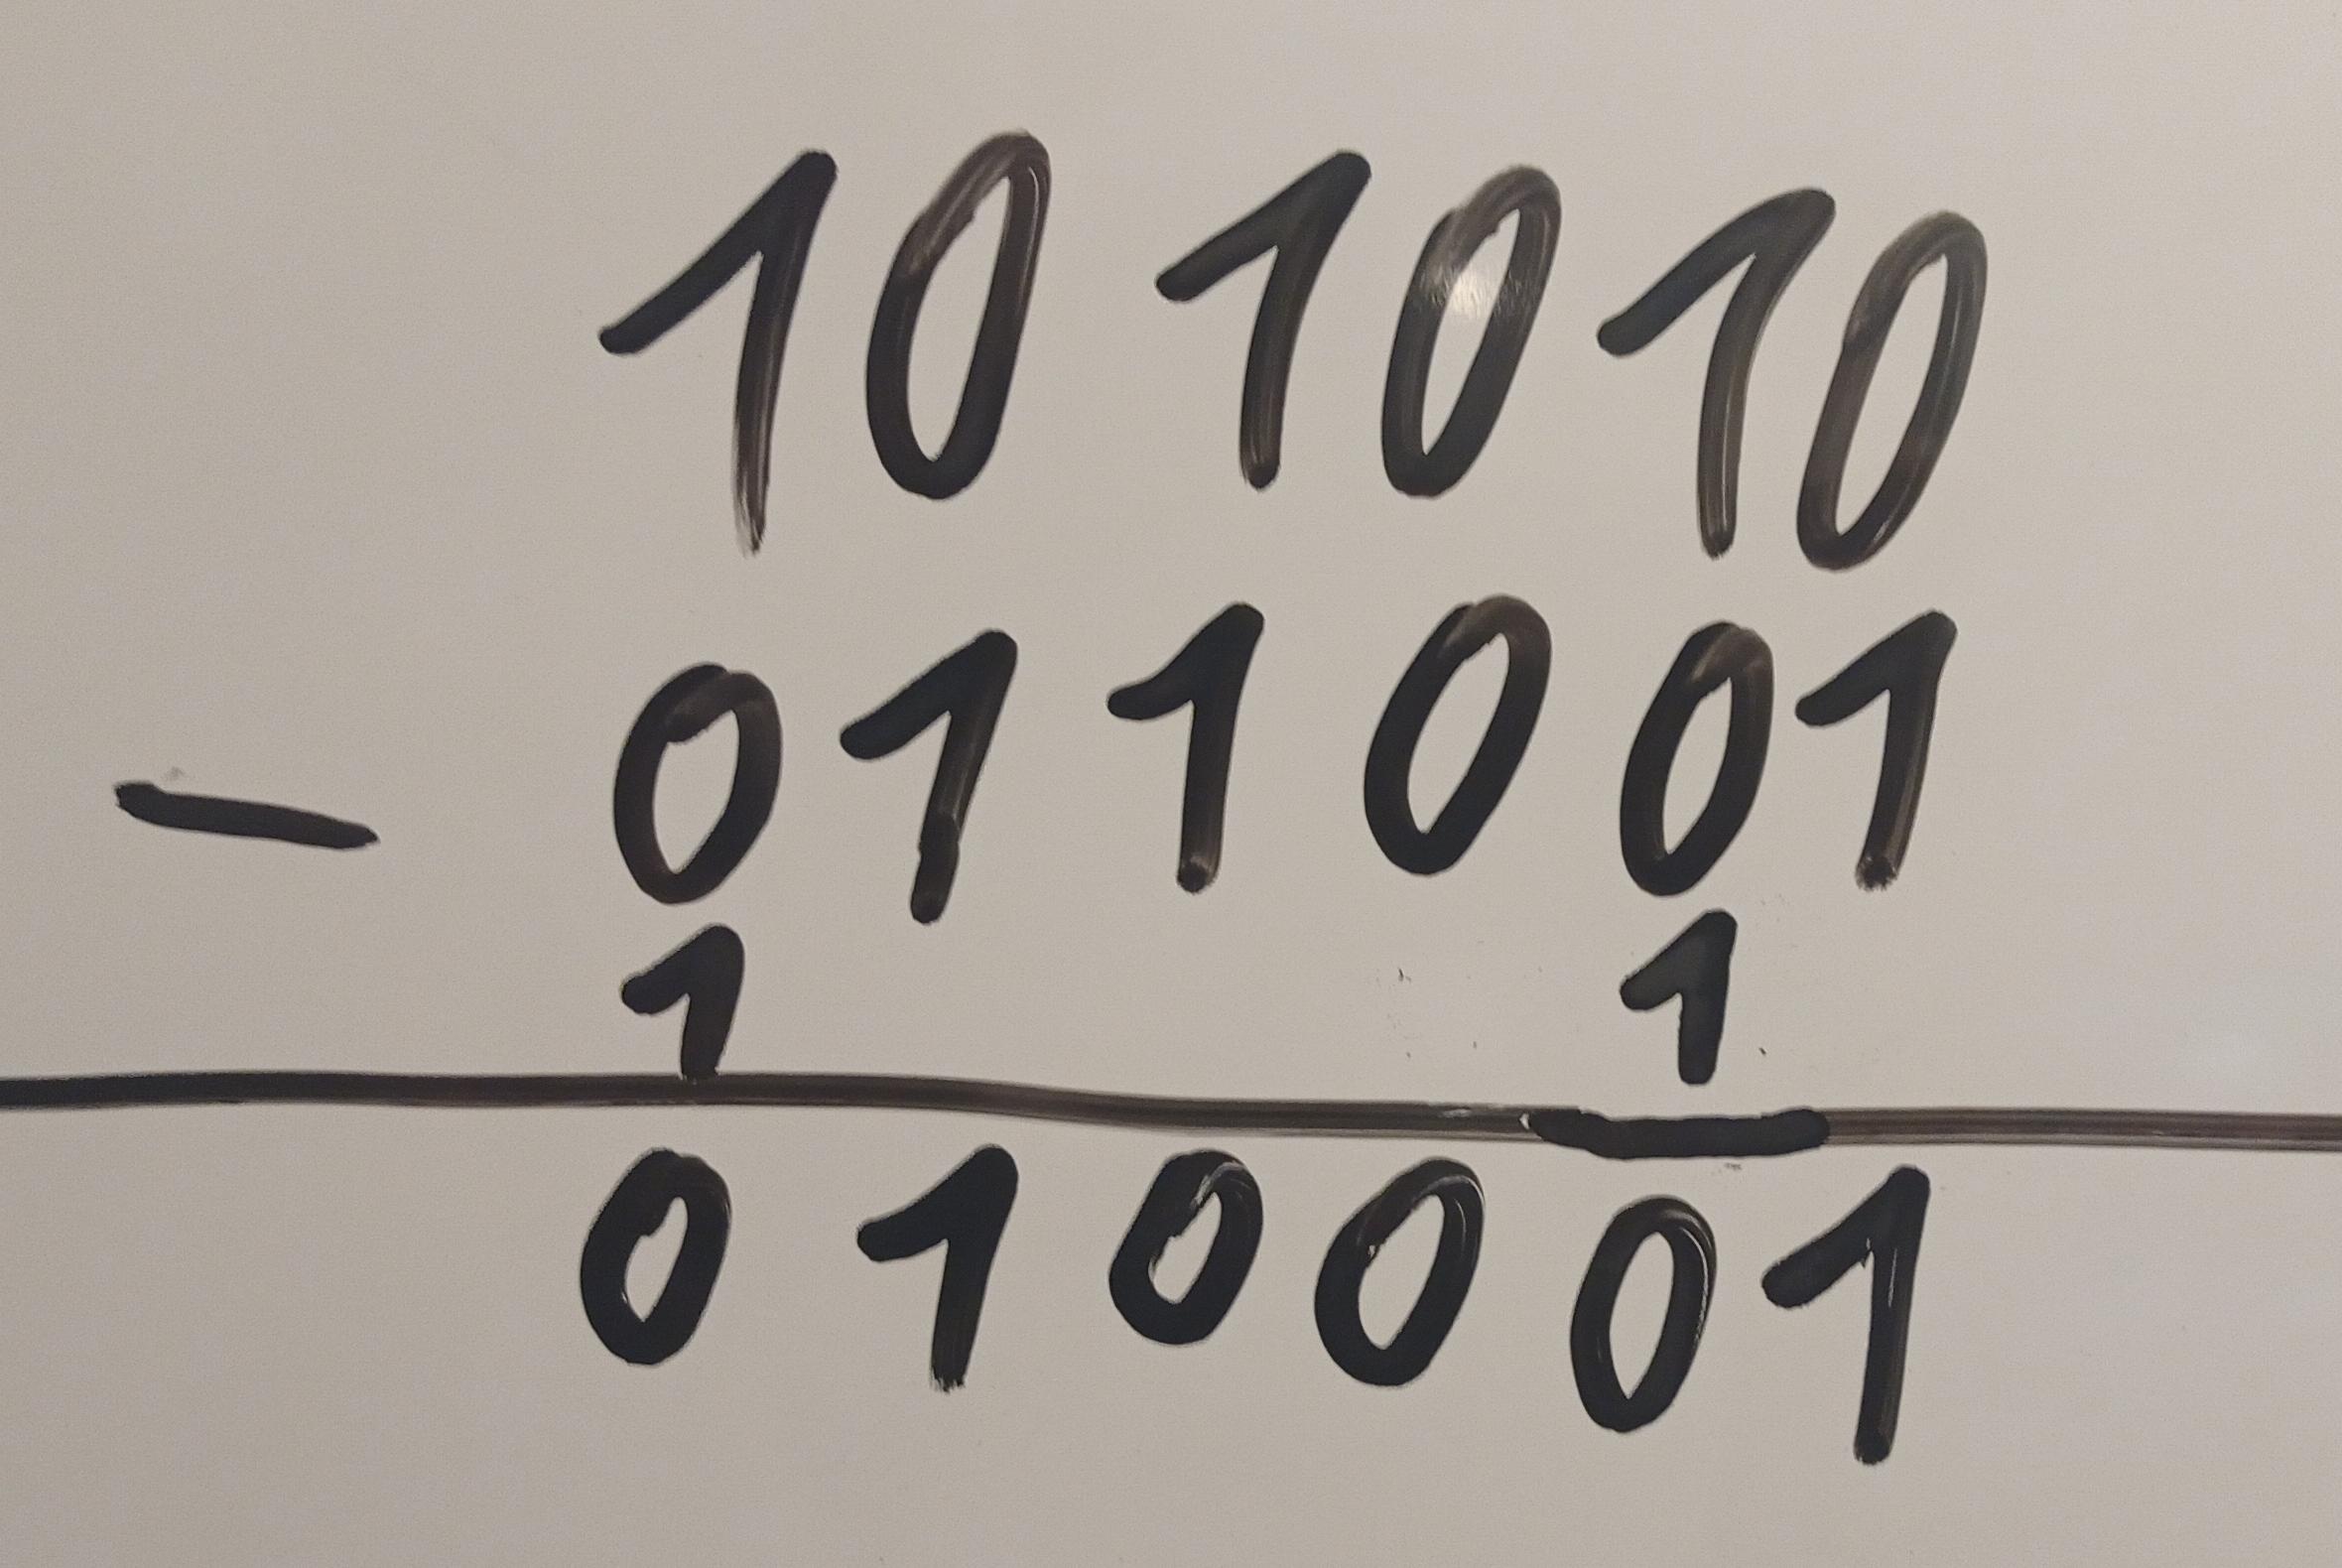 101010
- 011001
1 1
010001